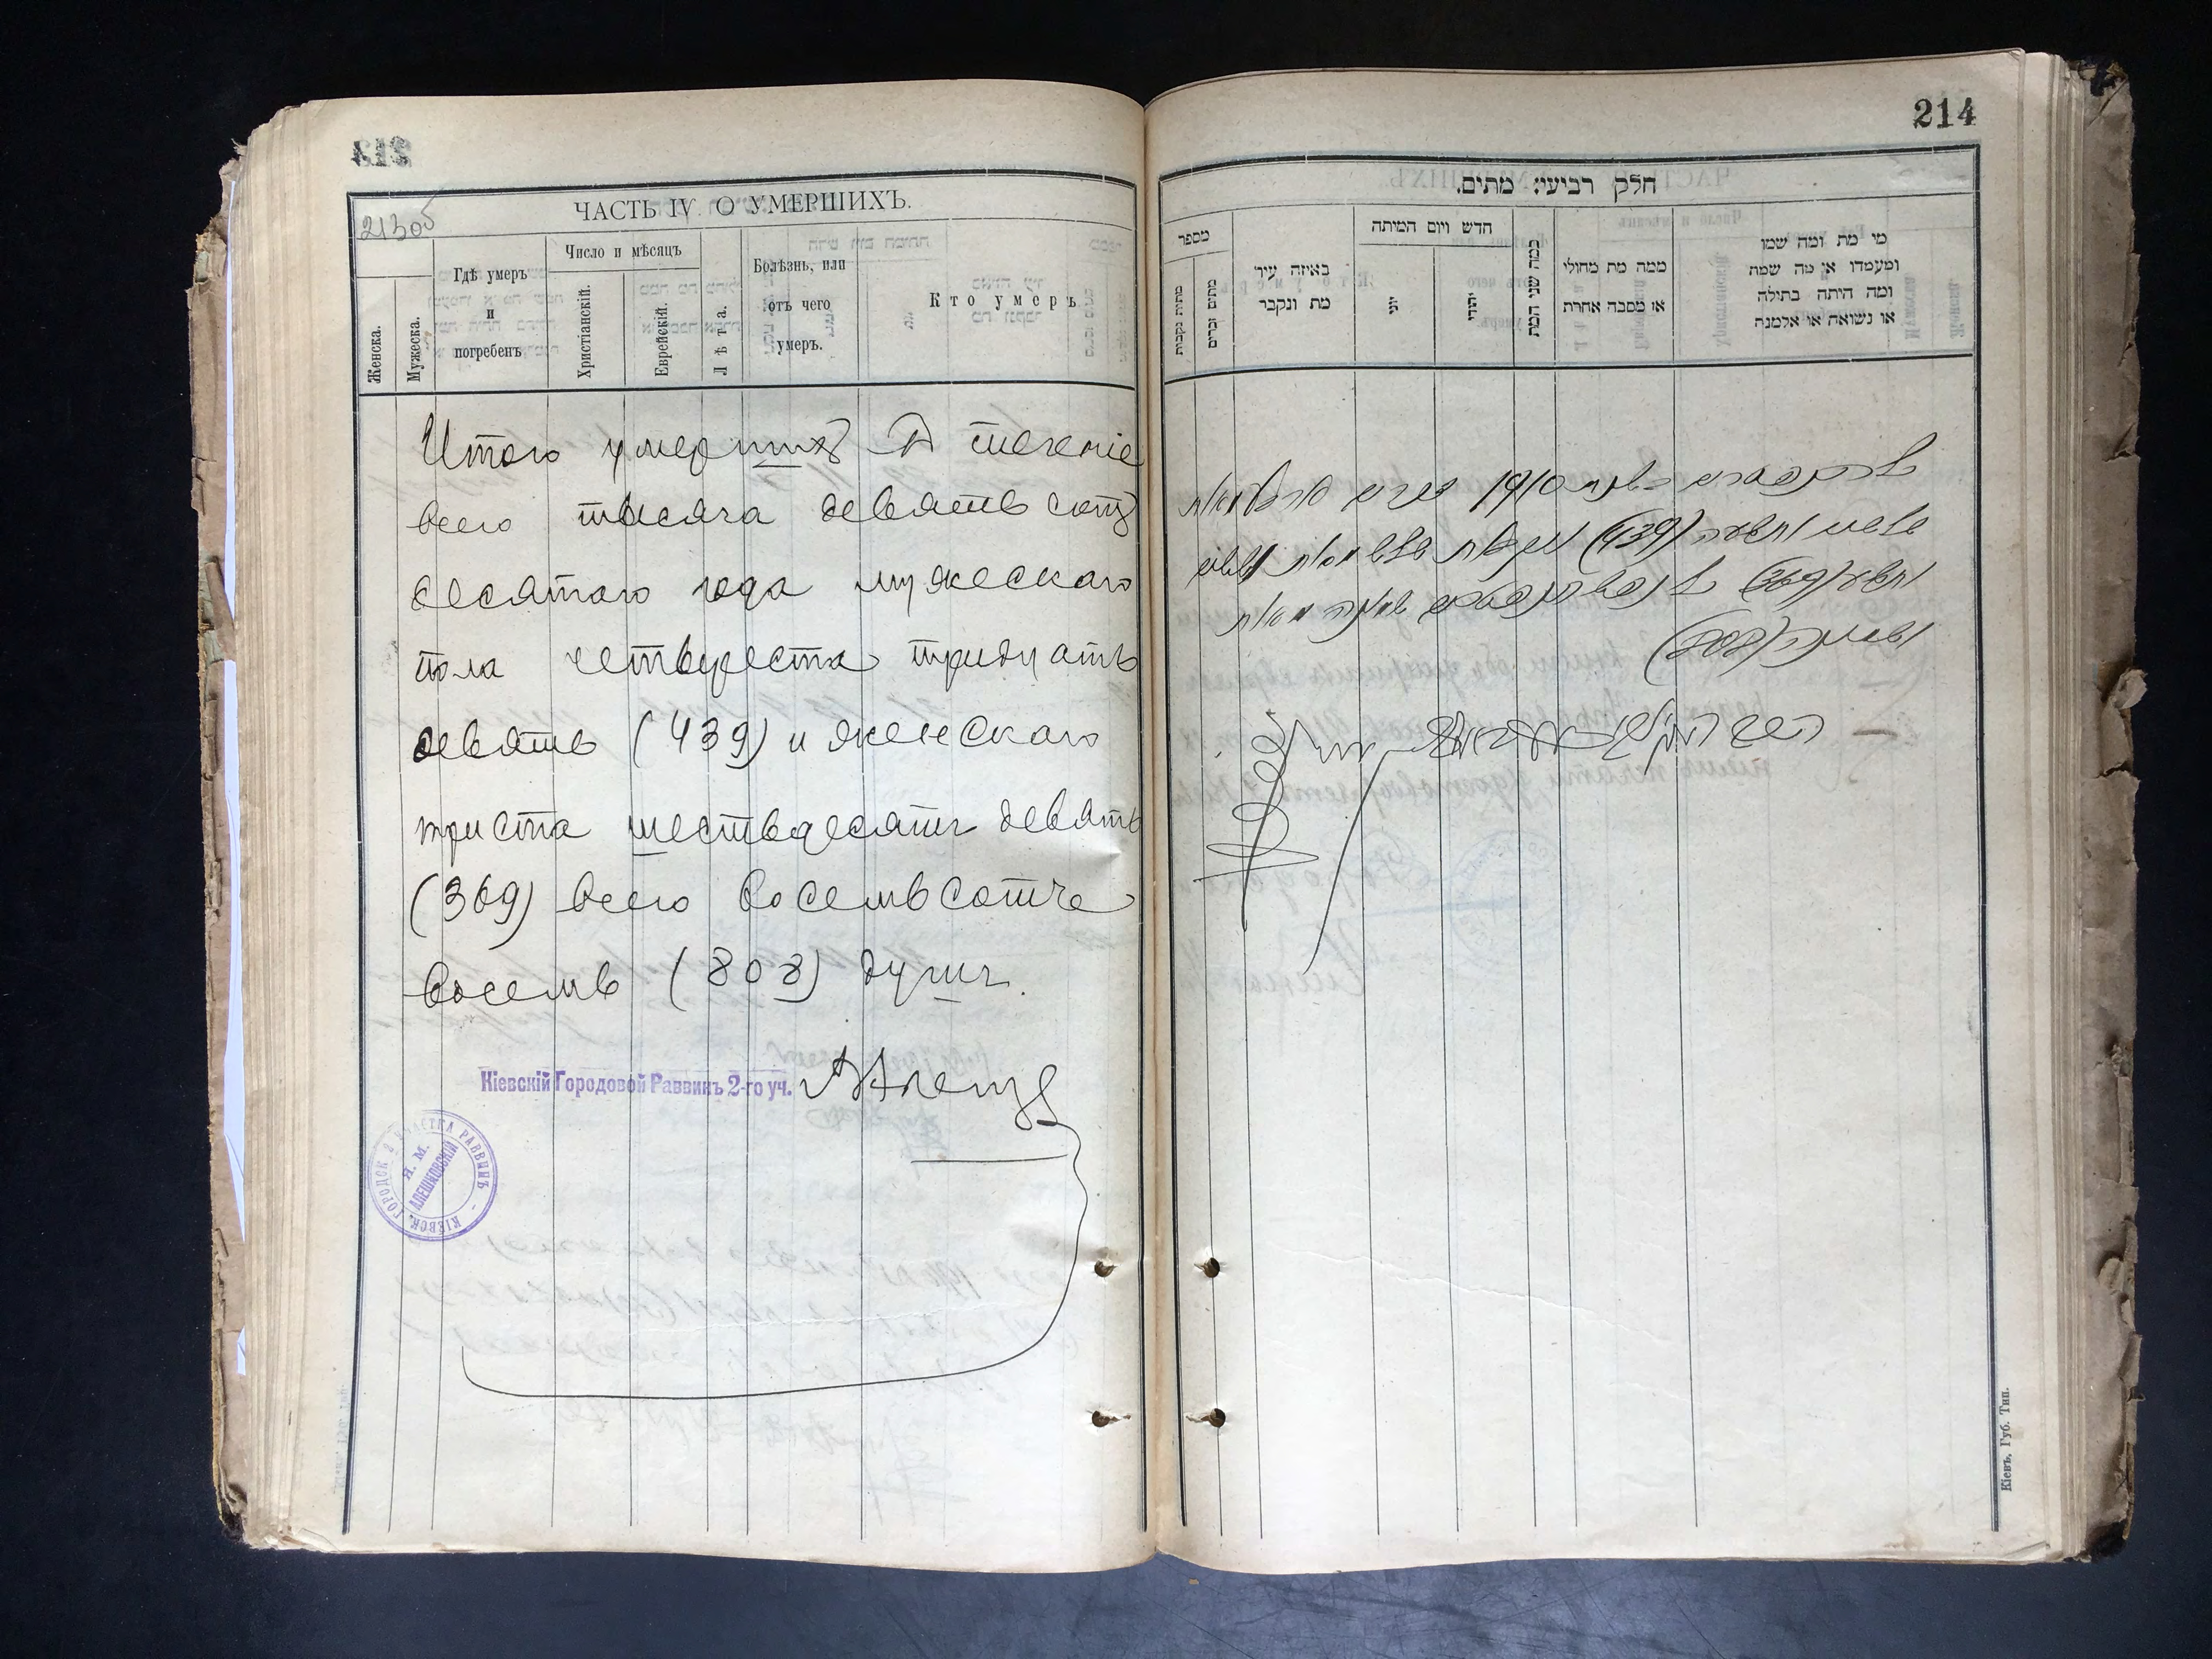 213об
ЧАСТЬ IV. О УМЕРШИХЪ.
Женска.
Мужеска.
Гдѣ умеръ
и
погребенъ
Число и мѣсяцъ
Христіанскій.
Еврейскій.
Лѣта.
Болѣзнь, или
отъ чего
умеръ.
Кто умеръ
Итого умершихъ в теченіе
всего тысяча девятьсотъ
десятаго года мужескаго
пола четыреста тридцать
девять (439) и женскаго
триста шестьдесятъ девять
(369) всего восемьсотъ
восемь (808) душъ.
Кіевскій Городовой Раввинъ 2-го уч.
КІЕВСК. ГОРОДСК. 2 УЧАСТКА РАВВИНЪ
Я. М.
АЛЕШКОВСКІЙ
214
חלק רביעי: מתים.
מספר
מתות נקבות
מתים זכרים
באיזה עיר
מת ונקבר
חדש ויום המיתה
יוני
יהודי
כמה שני המת
ממה מת מחולי
או מסבה אחרת
מי מת ומה שמו
ומעמדו או מה שמה
ומה היתה בתולה
או נשואה או אלמנה
1910 ארבע מאות
שלשים ותשעה (439) שלש מאות ששים
ותשע (369) שמנה מאות
ושמנה (808)
Кіевъ, Губ. Тип.